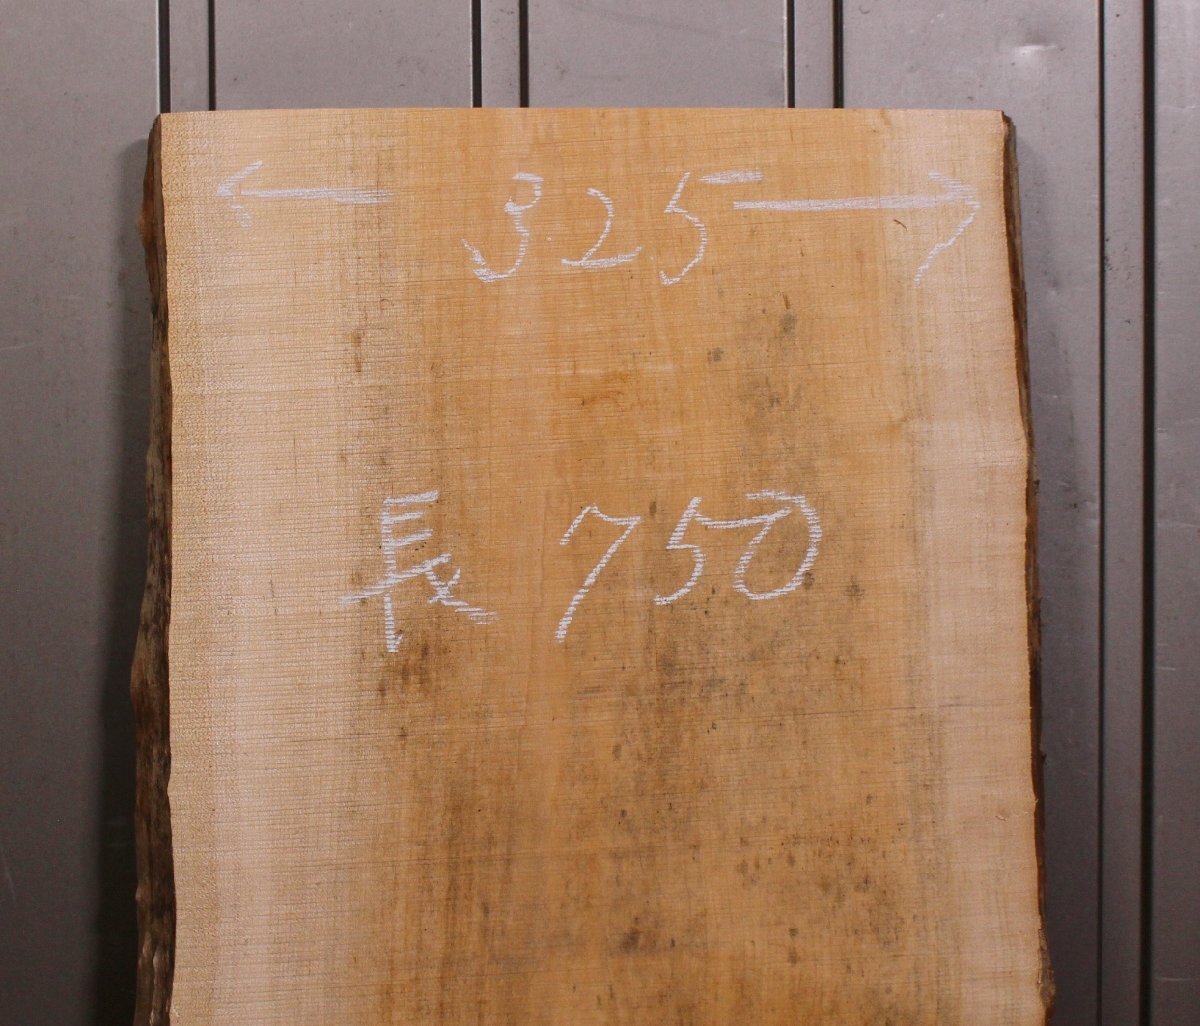 ← 325 →
長 750